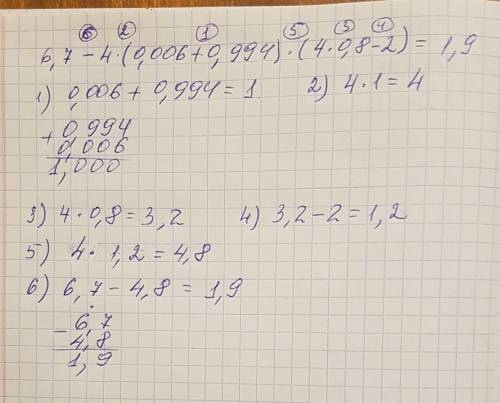 ⑥ ② ① ⑤ ③ ④
6,7 - 4 · (0,006 + 0,994) · (4 · 0,8 - 2) = 1,9
1) 0,006 + 0,994 = 1 2) 4 · 1 = 4
+ 0,994
0,006
1,000
3) 4 · 0,8 = 3,2 4) 3,2 - 2 = 1,2
5) 4 · 1,2 = 4,8
6) 6,7 - 4,8 = 1,9
- 6,7
4,8
1,9